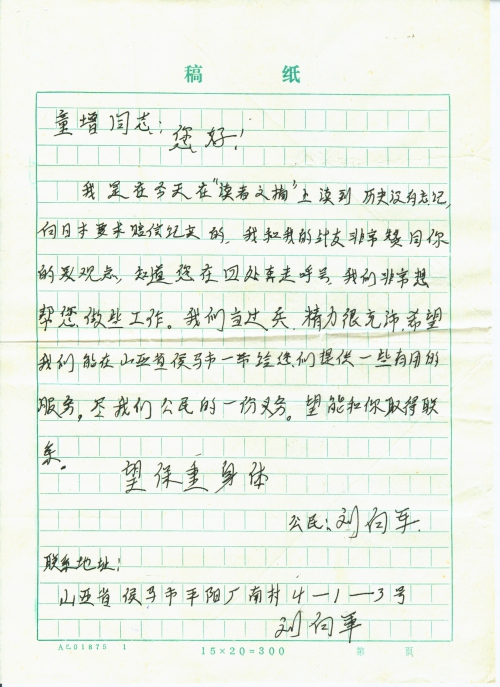 稿 纸
童增同志：
您好！
我是在今天在"读者文摘"上读到 历史没有忘记，
向日本要求赔偿纪文的，我和我的战友非常赞同你
的观点，知道您在四处奔走呼号，我们非常想
帮您做些工作。我们当过兵，精力很充沛，希望
我们能在山西省侯马市一带给您们提供一些有用的
服务。尽我们公民的一份义务。望能和你取得联
系。
望保重身体
公民：刘向军.
联系地址：
山西省侯马市平阳厂南村4—1—3号
刘向军
15×20=300
第 页